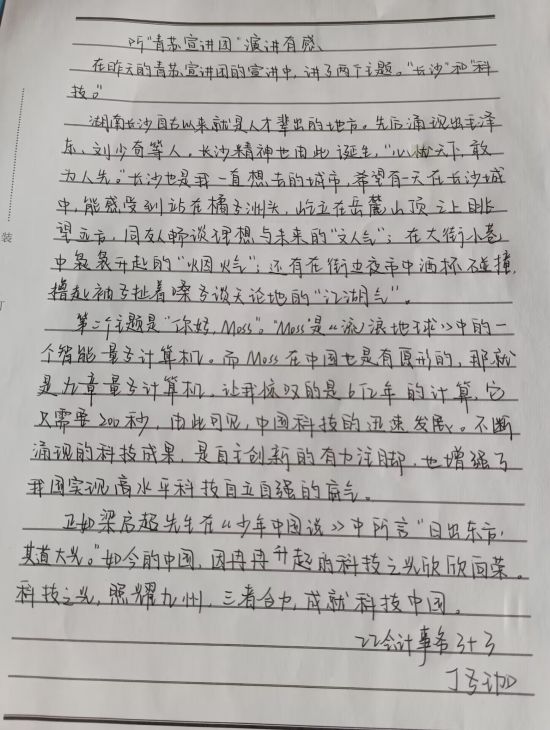 听“青苏宣讲团”演讲有感
在昨天的青苏宣讲团的宣讲中，讲了两个主题。“长沙”和“科
技。”
湖南长沙自古以来就是人才辈出的地方。先后涌现出毛泽
东、刘少奇等人，长沙精神也由此诞生，“心忧天下，敢
为人先。”长沙也是我一直想去的城市，希望有一天在长沙城
中，能感受到站在橘子洲头，屹立在岳麓山顶之上眺
望远方，同友人畅谈理想与未来的“文人气”；在大街小巷
中袅袅升起的“烟火气”；还有在街边夜市中酒杯碰撞，
撸起袖子扯着嗓子谈天论地的“江湖气”。
第二个主题是“你好，Moss”。“Moss是《流浪地球》中的一
个智能量子计算机。而Moss在中国也是有原形的，那就
是九章量子计算机。让我惊叹的是6亿年的计算，它
只需要200秒，由此可见，中国科技的迅速发展。不断
涌现的科技成果，是自主创新的有力注脚，也增强了
我国实现高水平科技自立自强的底气。
正如梁启超先生在《少年中国说》中所言“日出东方，
其道大光。”如今的中国，因冉冉升起的科技之光欣欣向荣。
科技之光，照耀九州，三者合力，成就科技中国。
22会计事务3+3
丁子
装